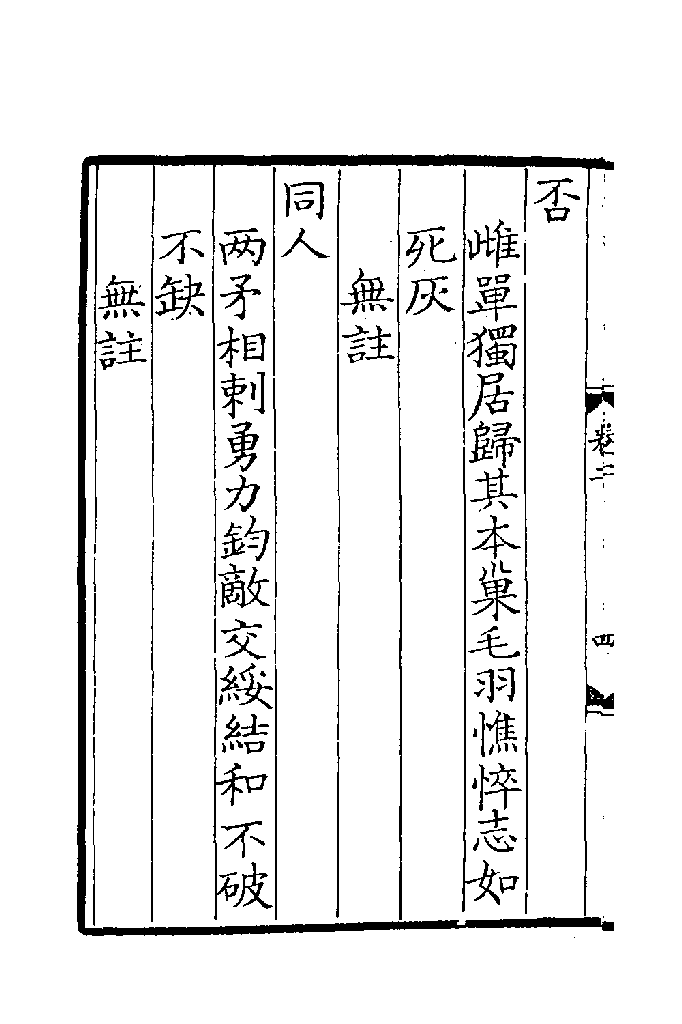 否
雌單獨居歸其本巢毛羽憔悴志如
死灰
無註
同人
两矛相刺勇力鈞敵交綏結和不破
不缺
無註
卷二
四